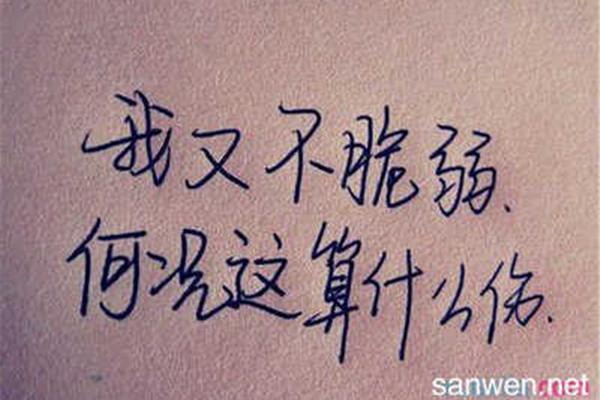 我又不脆弱.
何况这算什么伤.
sanwen.net